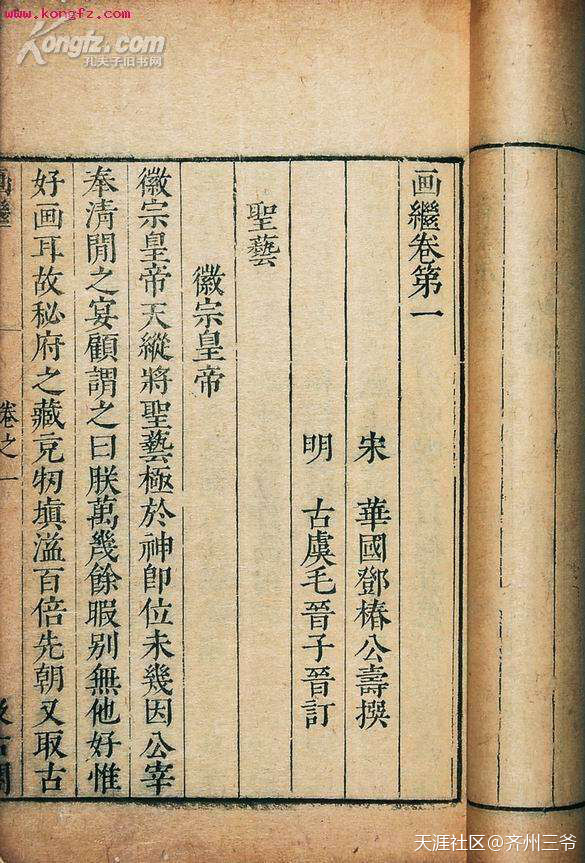 www.kongfz.com
Kongfz.com
孔夫子旧书网
画繼卷第一
宋　華國鄧椿公壽撰
明　古虞毛晉子晉訂
聖藝
徽宗皇帝
徽宗皇帝天縱將聖藝極於神即位未幾因公宰
奉清閒之宴顧謂之曰朕萬幾餘暇别無他好惟
好画耳故秘府之藏充牣填溢百倍先朝又取古
卷之一
天涯社区@齐州三爷